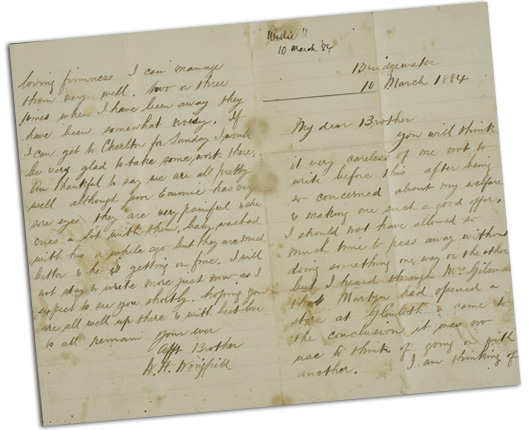 Willie
10 March '84
Bridgewater
10 March 1884
My dear Brother
you will think
it very careless of me not to
write before this after being
so concerned about my welfare
& making me such a good offer.
I should not have allowed so
much time to pass away without
doing something one way or the other
but I heard through Mr
that Martyn had opened a
store at & came to
the conclusion it was no
use to think of going on with
another. I am thinking of
loving firmness I can manage
them very well. Two or three
times when I have been away they
have been somewhat noisy. If
I can get to Charlton for Sunday I would
be very glad to take some work there,
Am thankful to say we are all pretty
well although poor Emmie has very
sore eyes they are very painful & she
cries a lot with them, baby
with his a while ago but they are
better & he is getting on fine. I will
not stay to write more just now as I
expect to see you shortly. hoping you
are all well up there & with best love
to all remain
Your ever
Afft Brother
W. H. Wingfield